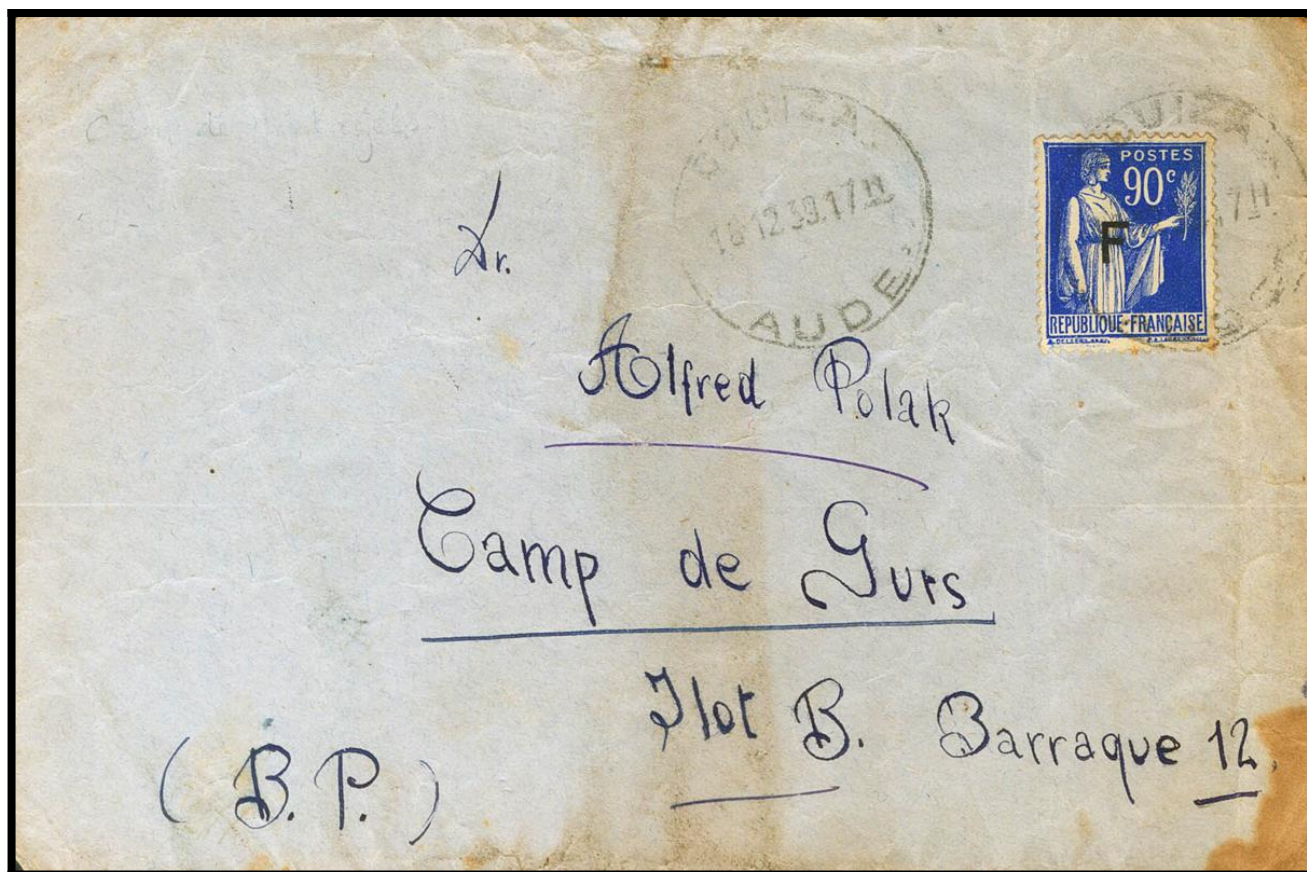 COUIZA
18.12.39.17H
AUDE.
POSTES
90c
F
REPUBLIQUE FRANÇAISE
Dr.
Alfred Polak
Camp de Gurs
Ilot B. Barraque 12.
(B.P.)